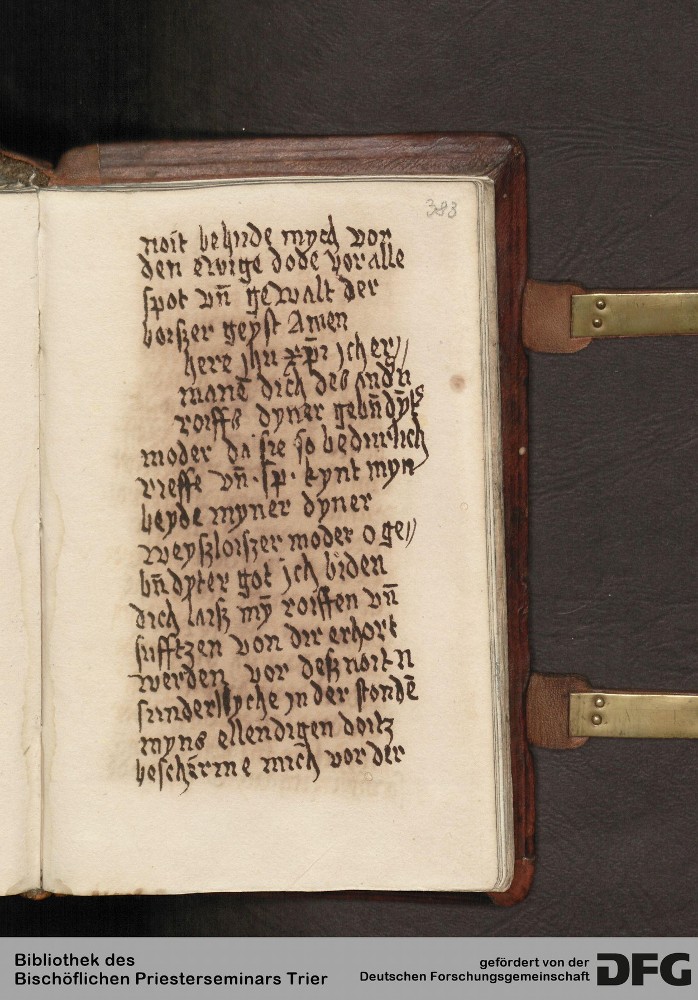 383
noit behude mych vor
den ewige dode vor alle
spot vn̄ gewalt der
boiszer geyst Amen
here jhu xp̄i jch er//
manē dich des andn̄
roiffs dyner gebn̄dyts
moder da sie so bedrurlich
rieffe vn̄ · sp̄ · kynt myn
beyde myner dyner
weyszloiszer moder o ge//
bn̄dyter got jch biden
dich laisz mȳ roiffen vn̄
sufftzen von dir erhort
werden vor desz noit n
sunderllyche jn der stondē
myns ellendigen doitz
beschērme mich vor der
Bibliothek des
Bischöflichen Priesterseminars Trier
gefördert von der
Deutschen Forschungsgemeinschaft DFG